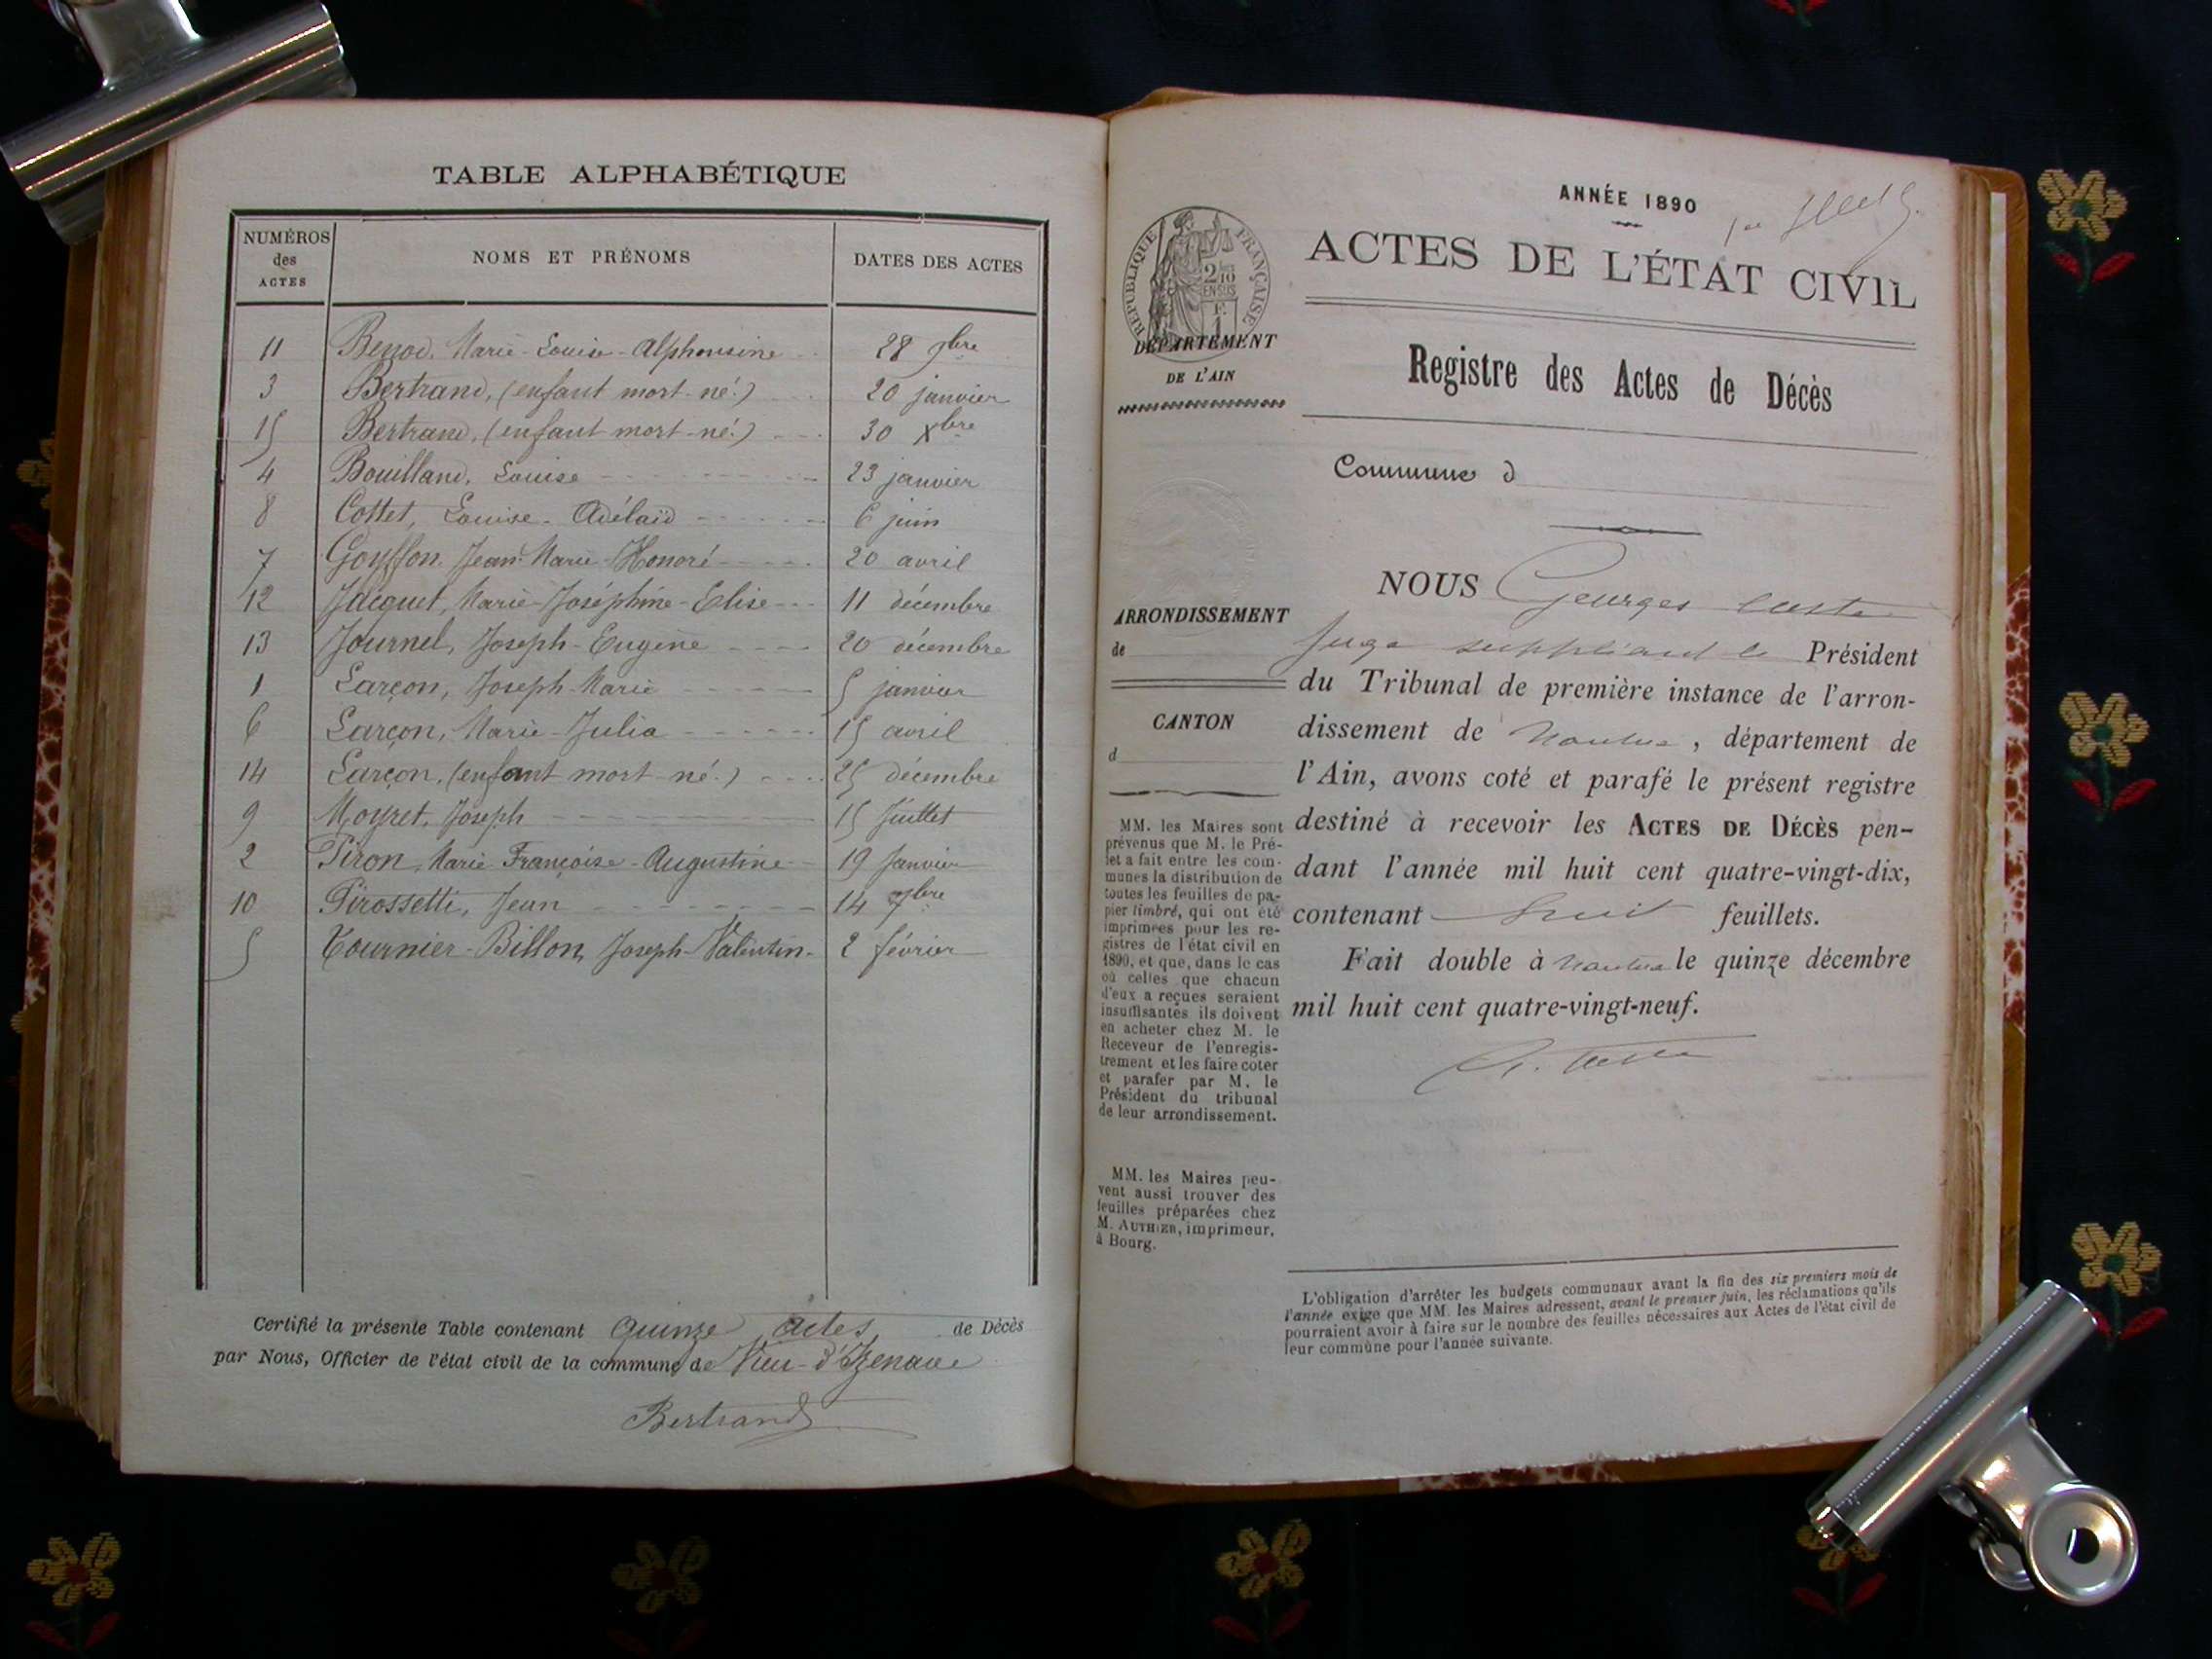 TABLE ALPHABÉTIQUE
NUMÉROS des ACTES
NOMS ET PRÉNOMS
DATES DES ACTES
11 Benod, Marie-Louise-Alphonsine 28 9bre
3 Bertrand, (enfant mort-né.) 20 janvier
15 Bertrand, (enfant mort-né.) 30 Xbre
4 Bouilland, Louise 23 janvier
8 Cottet, Louise-Adélaïd 6 juin
7 Gouffon, Jean-Marie-Honoré 20 avril
12 Jacquet, Marie-Joséphine-Elise 11 décembre
13 Journel, Joseph-Eugène 20 décembre
1 Larçon, Joseph-Marie 5 janvier
6 Larçon, Marie-Julia 15 avril
14 Larçon, (enfant mort-né.) 25 décembre
9 Moyret, Joseph 15 Juillet
2 Piron, Marie Françoise-Augustine 19 Janvier
10 Pirossetti, Jean 14 7bre
5 Tournier-Billon, Joseph-Valentin 2 février
Certifié la présente Table contenant Quinze Actes de Décès
par Nous, Officier de l'état civil de la commune de Vieu-d'Izenave
Bertrand
ANNÉE 1890
ACTES DE L'ÉTAT CIVIL
RÉPUBLIQUE FRANÇAISE
2/10 EN SUS
F. 1
DÉPARTEMENT
DE L'AIN
Registre des Actes de Décès
Commune d
ARRONDISSEMENT
de
CANTON
d
NOUS Georges
Juge suppléant le Président
du Tribunal de première instance de l'arron-
dissement de Nantua, département de
l'Ain, avons coté et parafé le présent registre
destiné à recevoir les ACTES DE DÉCÈS pen-
dant l'année mil huit cent quatre-vingt-dix,
contenant huit feuillets.
Fait double à Nantua le quinze décembre
mil huit cent quatre-vingt-neuf.
MM. les Maires sont
prévenus que M. le Pré-
fet a fait entre les com-
munes la distribution de
toutes les feuilles de pa-
pier timbré, qui ont été
imprimées pour les re-
gistres de l'état civil en
1890, et que, dans le cas
où celles que chacun
d'eux a reçues seraient
insuffisantes ils doivent
en acheter chez M. le
Receveur de l'enregis-
trement et les faire coter
et parafer par M. le
Président du tribunal
de leur arrondissement.
MM. les Maires peu-
vent aussi trouver des
feuilles préparées chez
M. AUTHIER, imprimeur,
à Bourg.
L'obligation d'arrêter les budgets communaux avant la fin des six premiers mois de
l'année exige que MM. les Maires adressent, avant le premier juin, les réclamations qu'ils
pourraient avoir à faire sur le nombre des feuilles nécessaires aux Actes de l'état civil de
leur commune pour l'année suivante.